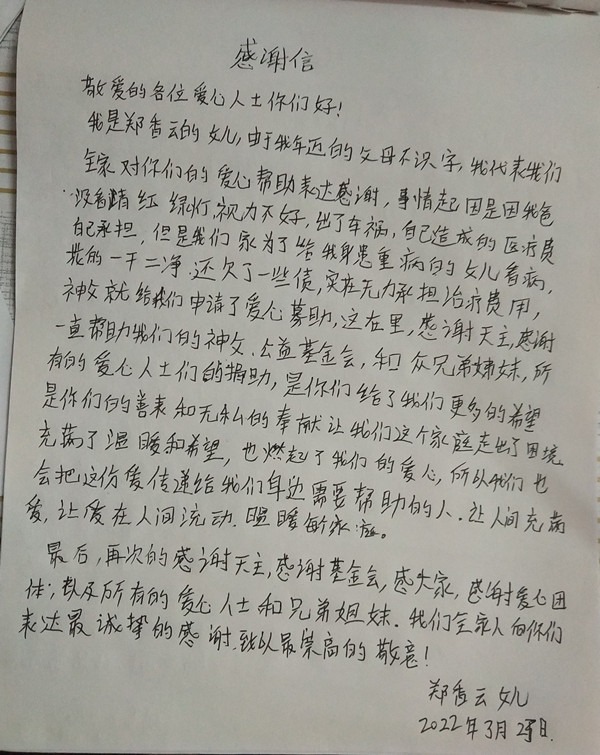 感谢信
敬爱的各位爱心人士你们好!
我是郑香云的女儿,由于我年迈的父母不识字,我代表我们
全家对你们的爱心帮助表达感谢,事情起因是因我爸
没看清红绿灯,视力不好,出了车祸,自己造成的医疗费
自己承担,但是我们家为了给我身患重病的女儿看病,
花的一干二净.还欠了一些债,实在无力承担治疗费用,
神父就给我们申请了爱心募助,这在里,感谢天主,感谢
一直帮助我们的神父.公益基金会,和众兄弟姊妹,所
有的爱心人士们的捐助,是你们给了我们更多的希望
是你们的善表和无私的奉献让我们这个家庭走出了困境
充满了温暖和希望,也燃起了我们的爱心,所以我们也
会把这份爱传递给我们身边需要帮助的人.让人间充满
爱,让爱在人间流动.温暖每家庭。
最后,再次的感谢天主,感谢基金会,感大家,感谢爱心团
体,以及所有的爱心人士和兄弟姐妹.我们全家人向你们
表达最诚挚的感谢.致以最崇高的敬意!
郑香云女儿
2022年3月25日.